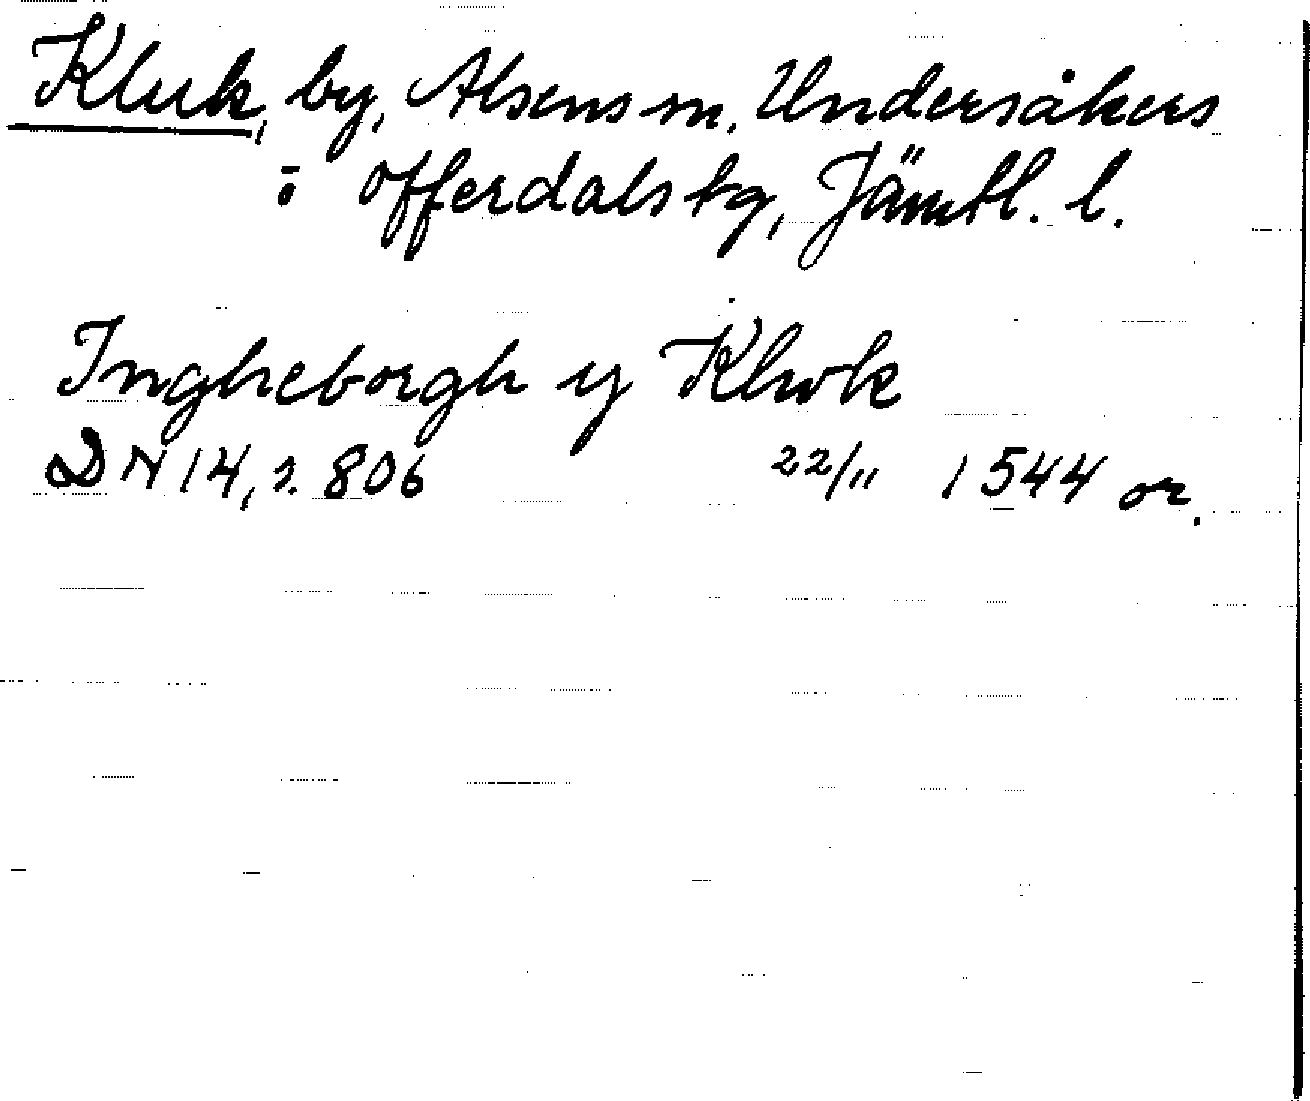 Kluk, by, Alsens sn. Undersåkers
o Offerdals tg, Jämtl. l.
Ingheborgh ij Klwk
DN 14, s. 806 22/11 1544 or.